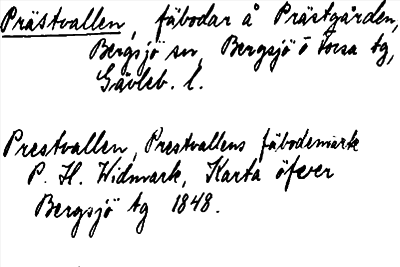 Prästvallen, fäbodar å Prästgården,
Bergsjö sn, Bergsjö o Torsa tg,
Gävleb. l.
Prestvallen, Prestvallens fäbodemark
P. H. Widmark, Karta öfver
Bergsjö tg 1848.